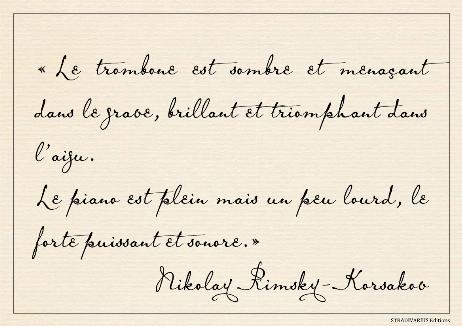 « Le trombone est sombre et menaçant
dans le grave, brillant et triomphant dans
l'aigu.
Le piano est plein mais un peu lourd, le
forte puissant et sonore.»
Nikolay Rimsky-Korsakov
STRADIVARIUS Editions